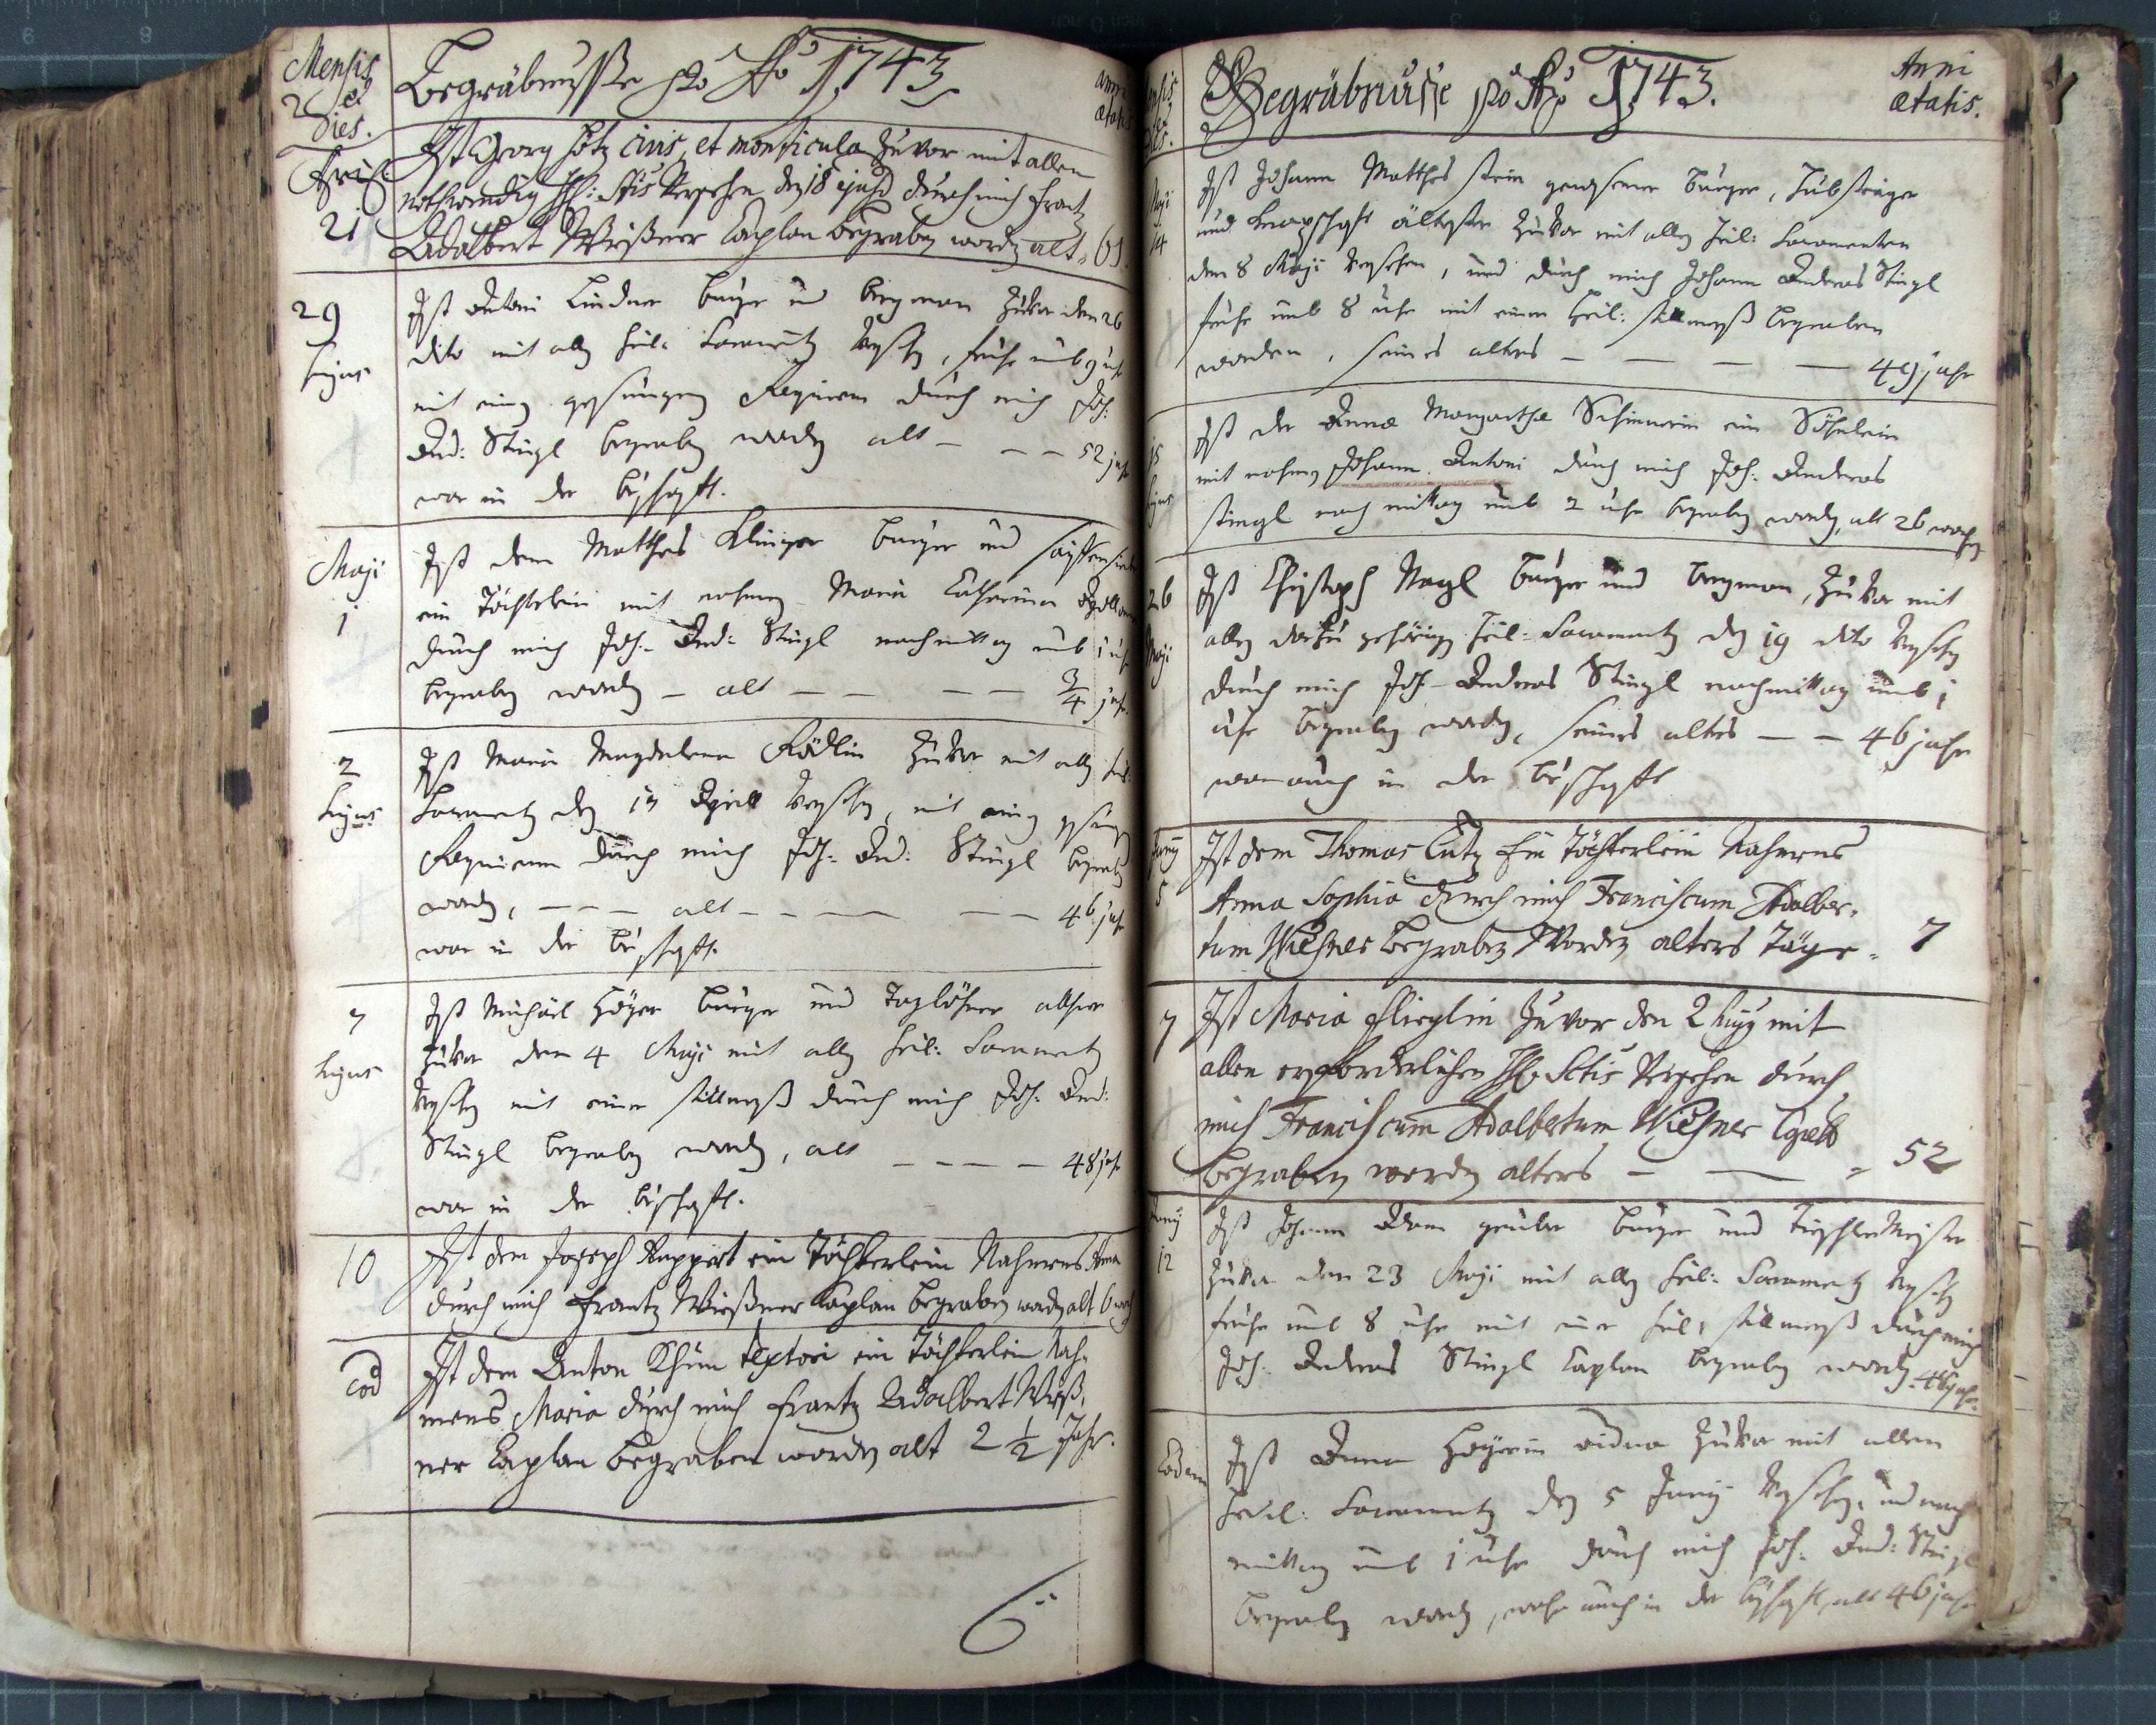 Mensis
et
Dies.
Begräbnusse pro Ao 1743
anni
ætatis
April
21
Ist Georg Hotz civis, et monticula zuvor mit allen
nothwendig Hh: Stis versehen den 18 ejusd durch mich Frantz
Adalbert Wießner Caplan begraben worden alt. 61.
29
hujus
Ist Antoni Lindner burger und bergman zuvor den 26
dito mit allen heil: Sacramenten versehen, fruhe umb 9 uhr
mit einem gesungenen Requiem durch mich Joh:
And: Stingl begraben worden alt – – – 52 jahr
war in der bruderschafft.
Maji
1
Ist dem Matthes Klinger burger und
ein Töchterlein mit nahmen Maria Catharina
durch mich Joh: And: Stingl nachmittag umb 1 uhr
begraben worden – alt – – – – 3/4 jahr
2
hujus
Ist Maria Magdalena Rödlin zuvor mit allen heil:
Sacramenten den 17 Aprill versehen, mit einem gesungenen
Requiem durch mich Joh: And: Stingl begraben
worden, – – – alt – – – – – 46 jahr
war in der bruderschafft.
7
hujus
Ist Michäel Höyer burger und Taglöhner alhier
zuvor den 4 Maji mit allen heil: Sacramenten
versehen mit einer stillmeß durch mich Joh: And:
Stingl begraben worden, alt – – – – 48 jahr
war in der bruderschafft.
10
Ist dem Joseph Ruppert ein Töchterlein Nahmens Anna
durch mich Frantz Wießner Caplan begraben worden alt 6 woch
Eod
Ist dem Anton Khün textori ein Töchterlein Nah-
mens Maria durch mich Frantz Adalbert Wieß-
ner Caplan begraben worden alt 2 1/2 Jahr.
6
Begräbnusse pro Ao 1743.
Anni
ætatis.
Maji
14
Ist Johann Matthes Stein gewesener burger,
und Knapschafft ältester zuvor mit allen heil: Sacramenten
den 8 Maji versehen, und durch mich Johann Andreas Stingl
fruhe umb 8 uhr mit einer heil: stillmeß begraben
worden, seines alters – – – – 49 jahr
15
hujus
Ist der Annæ Margarethæ Schinnerin ein Söhnlein
mit nahmen Johann Antoni durch mich Joh: Andreas
Stingl nach mittag umb 2 uhr begraben worden, alt 26 wochen
26
Maji
Ist Christoph Nagl burger und bergman, zuvor mit
allen darzu gehörigen heil: Sacramenten den 19 dito versehen
durch mich Joh: Andreas Stingl nachmittag umb 1
uhr begraben worden, seines alters – – 46 jahr
war auch in der bruderschafft
Junij
5
Ist dem Thomas Lutz Ein Töchterlein Nahmens
Anna Sophia durch mich Franciscum Adalber-
tum Wießner begraben worden alters Täge = 7
7
Ist Maria Flieglin zuvor den 2 hujus mit
allen erforderlichen Hh. Sctis versehen durch
mich Franciscum Adalbertum Wießner
begraben worden alters – – = 52
Junij
12
Ist Johann Adam gruber burger und
zuvor den 23 Maji mit allen heil: Sacramenten versehen
fruhe umb 8 uhr mit einer heil: stillmeß durch mich
Joh: Andreas Stingl Caplan begraben worden. 46 jahr.
Eodem
Ist Anna Höyerin vidua zuvor mit allen
heil: Sacramenten den 5 Junij versehen, und nach
mittag umb 1 uhr durch mich Joh: And: Stingl
begraben worden, wahr auch in der bruderschafft, alt 46 jahr